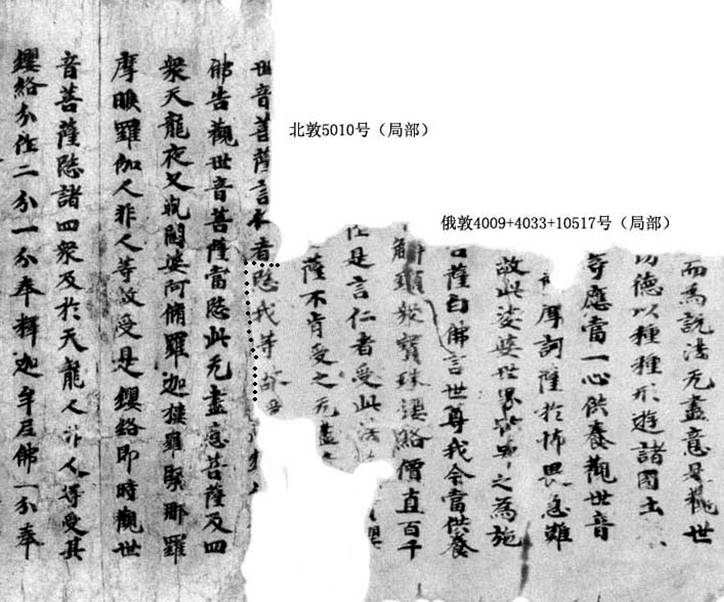 北敦5010号（局部）
俄敦4009+4033+10517号（局部）
而為説法无盡意是觀世
功德以種種形遊諸國土
等應當一心供養觀世音
摩訶薩於怖畏急難
故此娑婆世界皆号之為施
菩薩白佛言世尊我今當供養
解頸衆寶珠瓔珞價直百千
作是言仁者受此法
薩不肯受之无盡
世音菩薩言仁者愍我等故受
佛告觀世音菩薩當愍此无盡意菩薩及四
衆天龍夜叉乹闥婆阿脩羅迦樓羅緊那羅
摩睺羅伽人非人等故受是瓔珞即時觀世
音菩薩愍諸四衆及於天龍人非人等受其
瓔珞分作二分一分奉釋迦牟尼佛一分奉